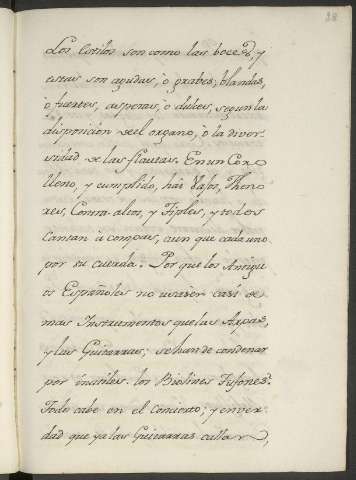 28
Los estilos son como las bocces, y
estas son agudas, ò grabes; blandas,
ò fuertes, asperas, ò dulces, segun la
disposicion de el organo, ò la diver-
sidad de las flautas. En un Coro
lleno, y cumplido, hai Vajos, Theno
res, Contra altos, y Tiples, y todos
cantan à compas, aun que cada uno
por su cuerda. Por que los Antigu
os Españoles no usasen casi de
mas Instrumentos que las Arpas,
y las Guitarras; se han de condenar
por inutiles los Biolines
Todo cabe en el concierto; y en ver-
dad que ya las Guitarras callar